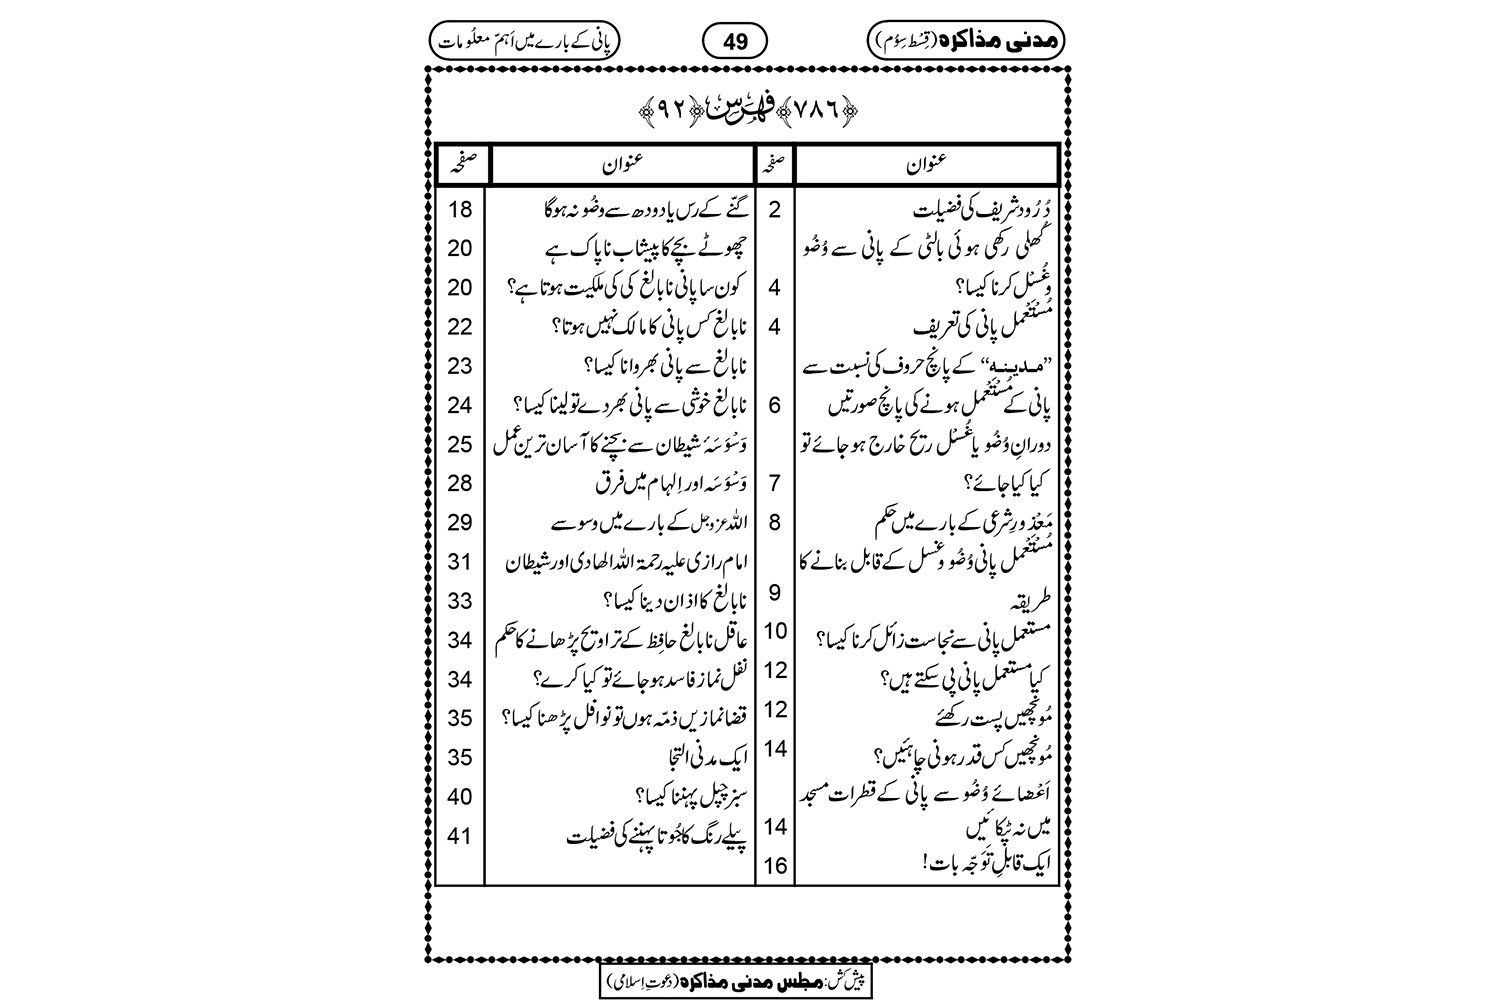 مدنی مذاکرہ (قِسْط سِوُم)
49
پانی کے بارے میں اَہَمّ معلُومات
﴿۷۸۶﴾ فہرس ﴿۹۲﴾
عنوان صفحہ
دُرُود شریف کی فضیلت 2
کُھلی رکھی ہوئی بالٹی کے پانی سے وُضُو
وغُسْل کرنا کیسا؟ 4
مُسْتَعْمل پانی کی تعریف 4
”مدینہ“ کے پانچ حروف کی نسبت سے
پانی کے مُسْتَعْمل ہونے کی پانچ صورتیں 6
دورانِ وُضُو یا غُسْل ریح خارج ہو جائے تو
کیا کیا جائے؟ 7
مَعْذورِ شرعی کے بارے میں حکم 8
مُسْتَعْمل پانی وُضُو وغسل کے قابل بنانے کا
طریقہ 9
مستعمل پانی سے نجاست زائل کرنا کیسا؟ 10
کیا مستعمل پانی پی سکتے ہیں؟ 12
مُونچھیں پست رکھئے 12
مُونچھیں کس قدر ہونی چاہئیں؟ 14
اَعْضائے وُضُو سے پانی کے قطرات مسجد
میں نہ ٹپکائیں 14
ایک قابلِ تَوَجّہ بات! 16
عنوان صفحہ
گنّے کے رس یا دودھ سے وضُو نہ ہوگا 18
چھوٹے بچے کا پیشاب ناپاک ہے 20
کون سا پانی نابالغ کی کی ملکیت ہوتا ہے؟ 20
نابالغ کس پانی کا مالک نہیں ہوتا؟ 22
نابالغ سے پانی بھروانا کیسا؟ 23
نابالغ خوشی سے پانی بھر دے تو لینا کیسا؟ 24
وَسْوَسَۂ شیطان سے بچنے کا آسان ترین عمل 25
وَسْوَسَہ اور اِلہام میں فرق 28
اللہ عزوجل کے بارے میں وسوسے 29
امام رازی علیہ رحمۃ اللہ الھادی اور شیطان 31
نابالغ کا اذان دینا کیسا؟ 33
عاقل نابالغ حافِظ کے تراویح پڑھانے کا حکم 34
نفل نماز فاسد ہو جائے تو کیا کرے؟ 34
قضا نمازیں ذمّہ ہوں تو نوافل پڑھنا کیسا؟ 35
ایک مدنی التجا 35
سبز چپل پہننا کیسا؟ 40
پیلے رنگ کا جُوتا پہننے کی فضیلت 41
پیش کش: مجلس مدنی مذاکرہ (دعوتِ اسلامی)